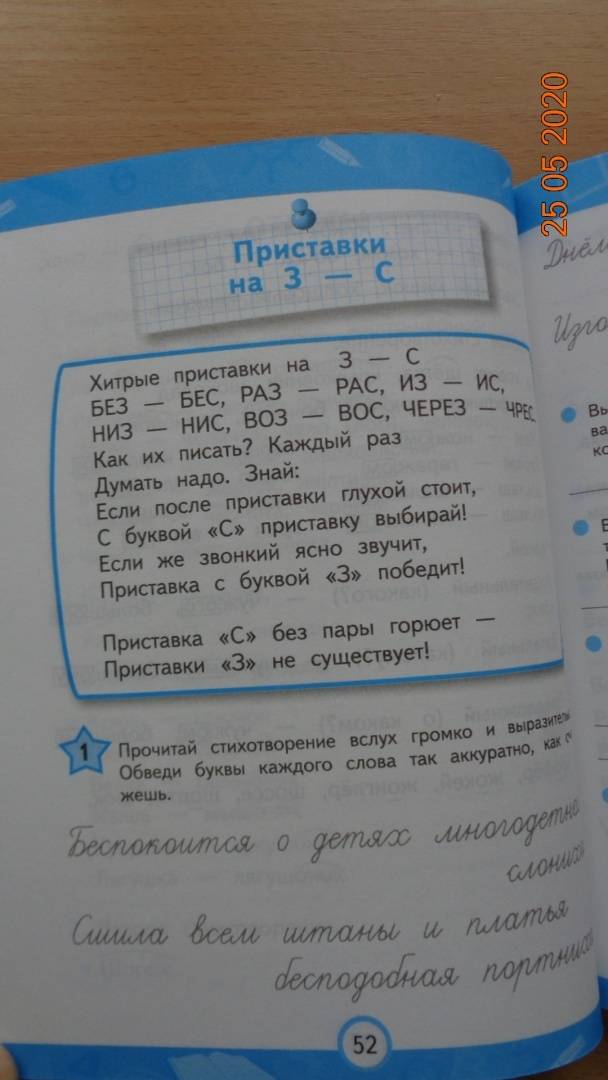 25 05 2020
Приставки
на З — С
Хитрые приставки на З — С
БЕЗ — БЕС, РАЗ — РАС, ИЗ — ИС,
НИЗ — НИС, ВОЗ — ВОС, ЧЕРЕЗ — ЧРЕС
Как их писать? Каждый раз
Думать надо. Знай:
Если после приставки глухой стоит,
С буквой «С» приставку выбирай!
Если же звонкий ясно звучит,
Приставка с буквой «З» победит!
Приставка «С» без пары горюет —
Приставки «З» не существует!
1 Прочитай стихотворение вслух громко и
Обведи буквы каждого слова так аккуратно, как
жешь.
Беспокоится о детях
Сшила всем штаны и платья
бесподобная
52
Днём